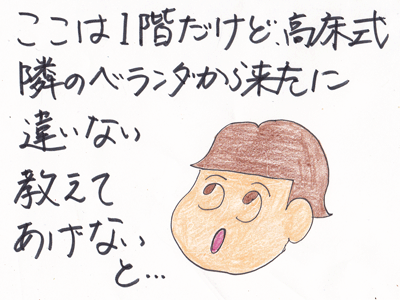 ここは1階だけど、高床式
隣のベランダから来たに
違いない
教えて
あげない
と…